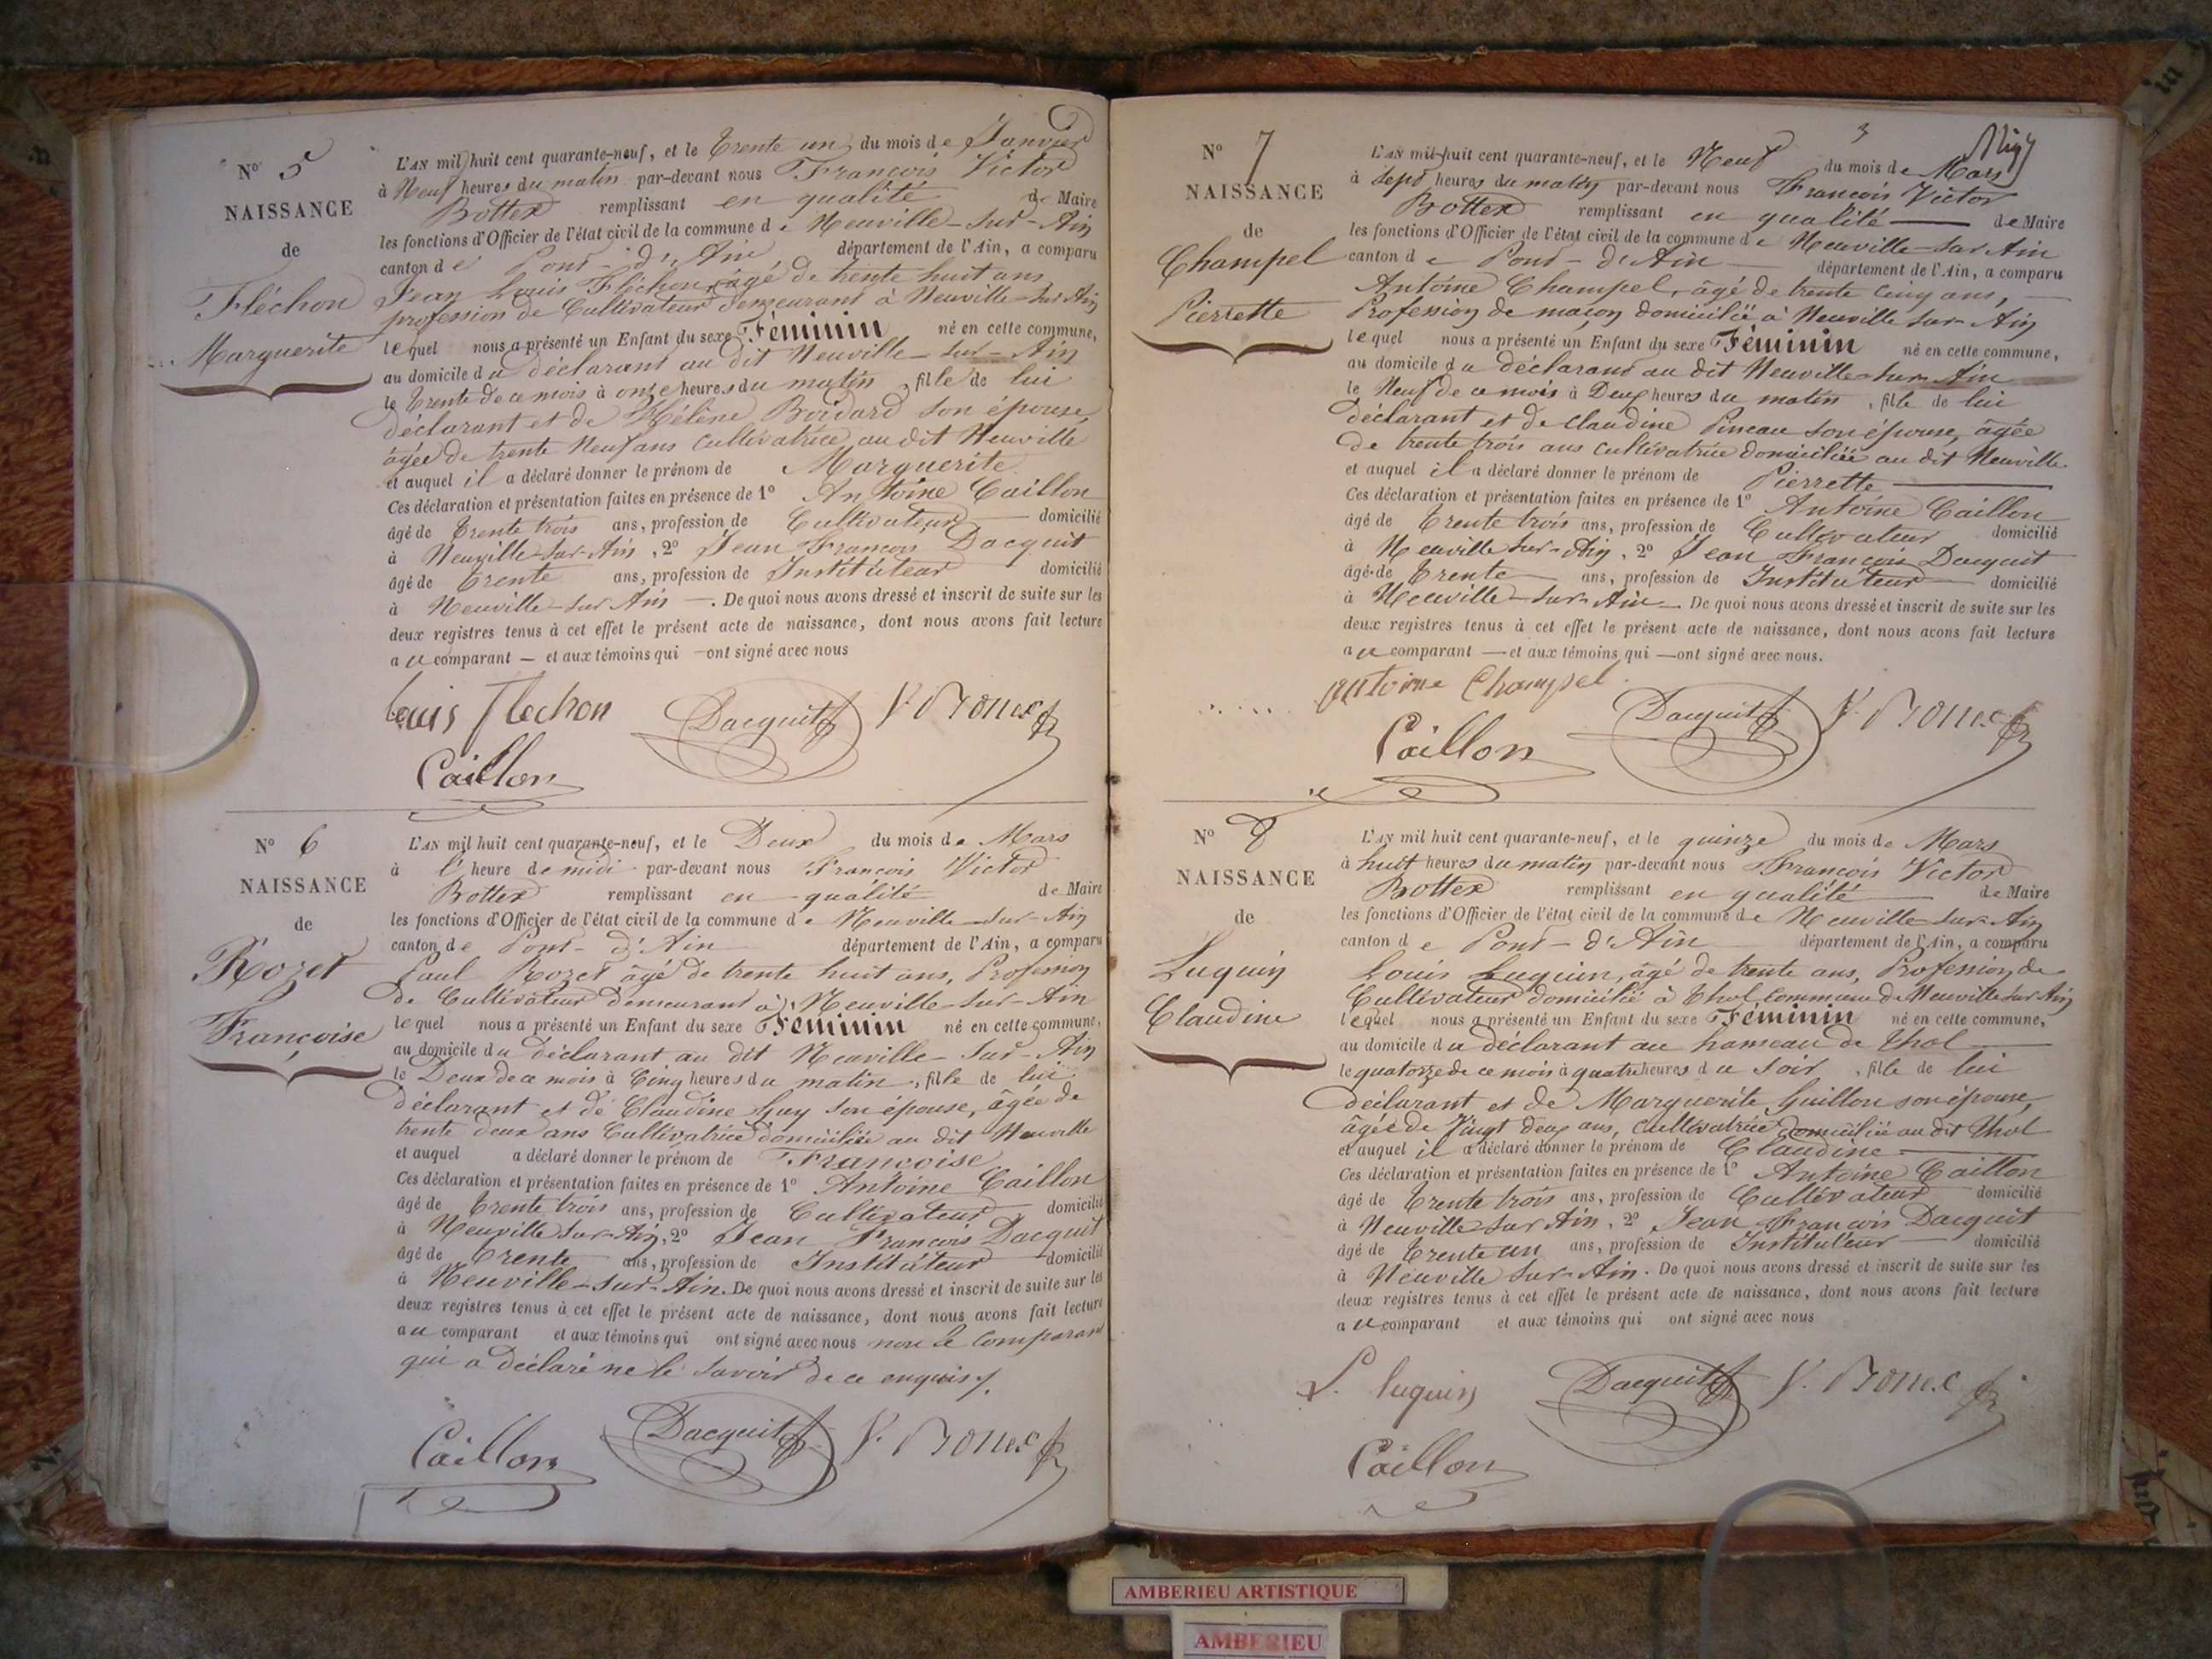 N° 5
NAISSANCE
de
Fléchon
Marguerite
L'AN mil huit cent quarante-neuf, et le trente un du mois de Janvier
à Neuf heures du matin par-devant nous François Victor
Bottex remplissant en qualité de Maire
les fonctions d'Officier de l'état civil de la commune de Neuville-sur-Ain
canton de Pont-d'Ain département de l'Ain, a comparu
Jean Louis Fléchon, âgé de trente huit ans
profession de Cultivateur demeurant à Neuville-sur-Ain
lequel nous a présenté un Enfant du sexe Féminin né en cette commune,
au domicile du déclarant au dit Neuville-sur-Ain
le trente de ce mois à onze heures du matin, fille de lui
déclarant et de Hélène Boidard son épouse,
âgée de trente Neuf ans cultivatrice au dit Neuville
et auquel il a déclaré donner le prénom de Marguerite.
Ces déclaration et présentation faites en présence de 1° Antoine Caillon
âgé de trente trois ans, profession de Cultivateur domicilié
à Neuville-sur-Ain, 2° Jean François Dacquit
âgé de trente ans, profession de Instituteur domicilié
à Neuville-sur-Ain. De quoi nous avons dressé et inscrit de suite sur les
deux registres tenus à cet effet le présent acte de naissance, dont nous avons fait lecture
au comparant et aux témoins qui ont signé avec nous
louis flechon Dacquit V. Bottex
Caillon
N° 6
NAISSANCE
de
Rozet
Françoise
L'AN mil huit cent quarante-neuf, et le Deux du mois de Mars
à l'heure de midi par-devant nous François Victor
Bottex remplissant en qualité de Maire
les fonctions d'Officier de l'état civil de la commune de Neuville-sur-Ain
canton de Pont-d'Ain département de l'Ain, a comparu
Paul Rozet âgé de trente huit ans, Profession
de Cultivateur demeurant à Neuville-sur-Ain
lequel nous a présenté un Enfant du sexe Féminin né en cette commune,
au domicile du déclarant au dit Neuville-sur-Ain
le Deux de ce mois à Cinq heures du matin, fille de lui
déclarant et de Claudine Guy son épouse, âgée de
trente deux ans Cultivatrice domiciliée au dit Neuville
et auquel a déclaré donner le prénom de Françoise
Ces déclaration et présentation faites en présence de 1° Antoine Caillon
âgé de trente trois ans, profession de Cultivateur domicilié
à Neuville sur-Ain, 2° Jean François Dacquit
âgé de trente ans, profession de Instituteur domicilié
à Neuville-sur-Ain. De quoi nous avons dressé et inscrit de suite sur les
deux registres tenus à cet effet le présent acte de naissance, dont nous avons fait lecture
au comparant et aux témoins qui ont signé avec nous non le comparant
qui a déclaré ne le savoir de ce enquis
Caillon Dacquit V. Bottex
3
N° 7
NAISSANCE
de
Champel
Pierrette
L'AN mil huit cent quarante-neuf, et le Neuf du mois de Mars
à sept heures du matin par-devant nous François Victor
Bottex remplissant en qualité de Maire
les fonctions d'Officier de l'état civil de la commune de Neuville-sur Ain
canton de Pont-d'Ain département de l'Ain, a comparu
Antoine Champel, âgé de trente cinq ans,
Profession de maçon domicilié à Neuville sur-Ain
lequel nous a présenté un Enfant du sexe Féminin né en cette commune,
au domicile du déclarant au dit Neuville-sur-Ain
le Neuf de ce mois à Deux heures du matin, fille de lui
déclarant et de Claudine Pineau son épouse, âgée
de trente trois ans cultivatrice domiciliée au dit Neuville.
et auquel il a déclaré donner le prénom de Pierrette
Ces déclaration et présentation faites en présence de 1° Antoine Caillon
âgé de trente trois ans, profession de Cultivateur domicilié
à Neuville sur-Ain, 2° Jean François Dacquit
âgé de trente ans, profession de Instituteur domicilié
à Neuville-sur-Ain. De quoi nous avons dressé et inscrit de suite sur les
deux registres tenus à cet effet le présent acte de naissance, dont nous avons fait lecture
au comparant et aux témoins qui ont signé avec nous.
antoine Champel
Caillon Dacquit V. Bottex
N° 8
NAISSANCE
de
Luquin
Claudine
L'AN mil huit cent quarante-neuf, et le quinze du mois de Mars
à huit heures du matin par-devant nous François Victor
Bottex remplissant en qualité de Maire
les fonctions d'Officier de l'état civil de la commune de Neuville-sur-Ain
canton de Pont-d'Ain département de l'Ain, a comparu
Louis Luquin, âgé de trente ans, Profession de
Cultivateur domicilié à Thol commune de Neuville sur Ain
lequel nous a présenté un Enfant du sexe Féminin né en cette commune,
au domicile du déclarant au hameau de Thol
le quatorze de ce mois à quatre heures du soir, fille de lui
déclarant et de Marguerite Guillon son épouse,
âgée de Vingt deux ans, cultivatrice domiciliée au dit Thol
et auquel il a déclaré donner le prénom de Claudine
Ces déclaration et présentation faites en présence de 1° Antoine Caillon
âgé de trente trois ans, profession de Cultivateur domicilié
à Neuville sur Ain, 2° Jean François Dacquit
âgé de trente un ans, profession de Instituteur domicilié
à Neuville sur-Ain. De quoi nous avons dressé et inscrit de suite sur les
deux registres tenus à cet effet le présent acte de naissance, dont nous avons fait lecture
au comparant et aux témoins qui ont signé avec nous
L. luquin Dacquit V. Bottex
Caillon
AMBERIEU ARTISTIQUE
AMBERIEU